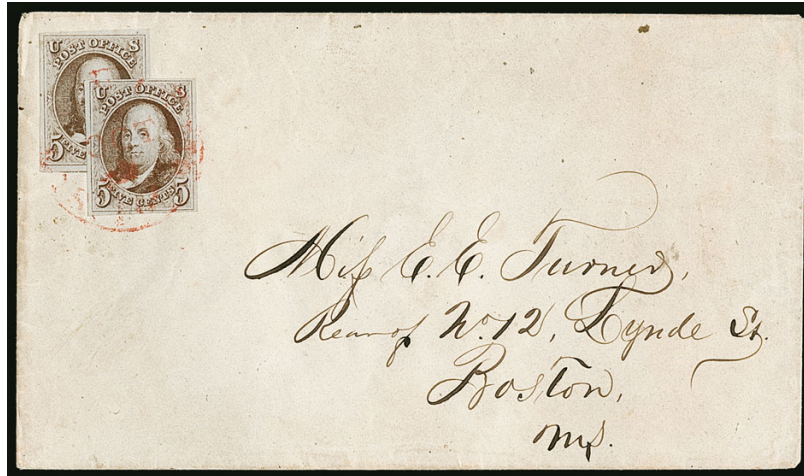 U S
POST OFFICE
5 FIVE
U S
POST OFFICE
5 FIVE CENTS 5
Miſs E. E. Turner,
Rear of No. 12, Lynde St.
Boston,
Ms.